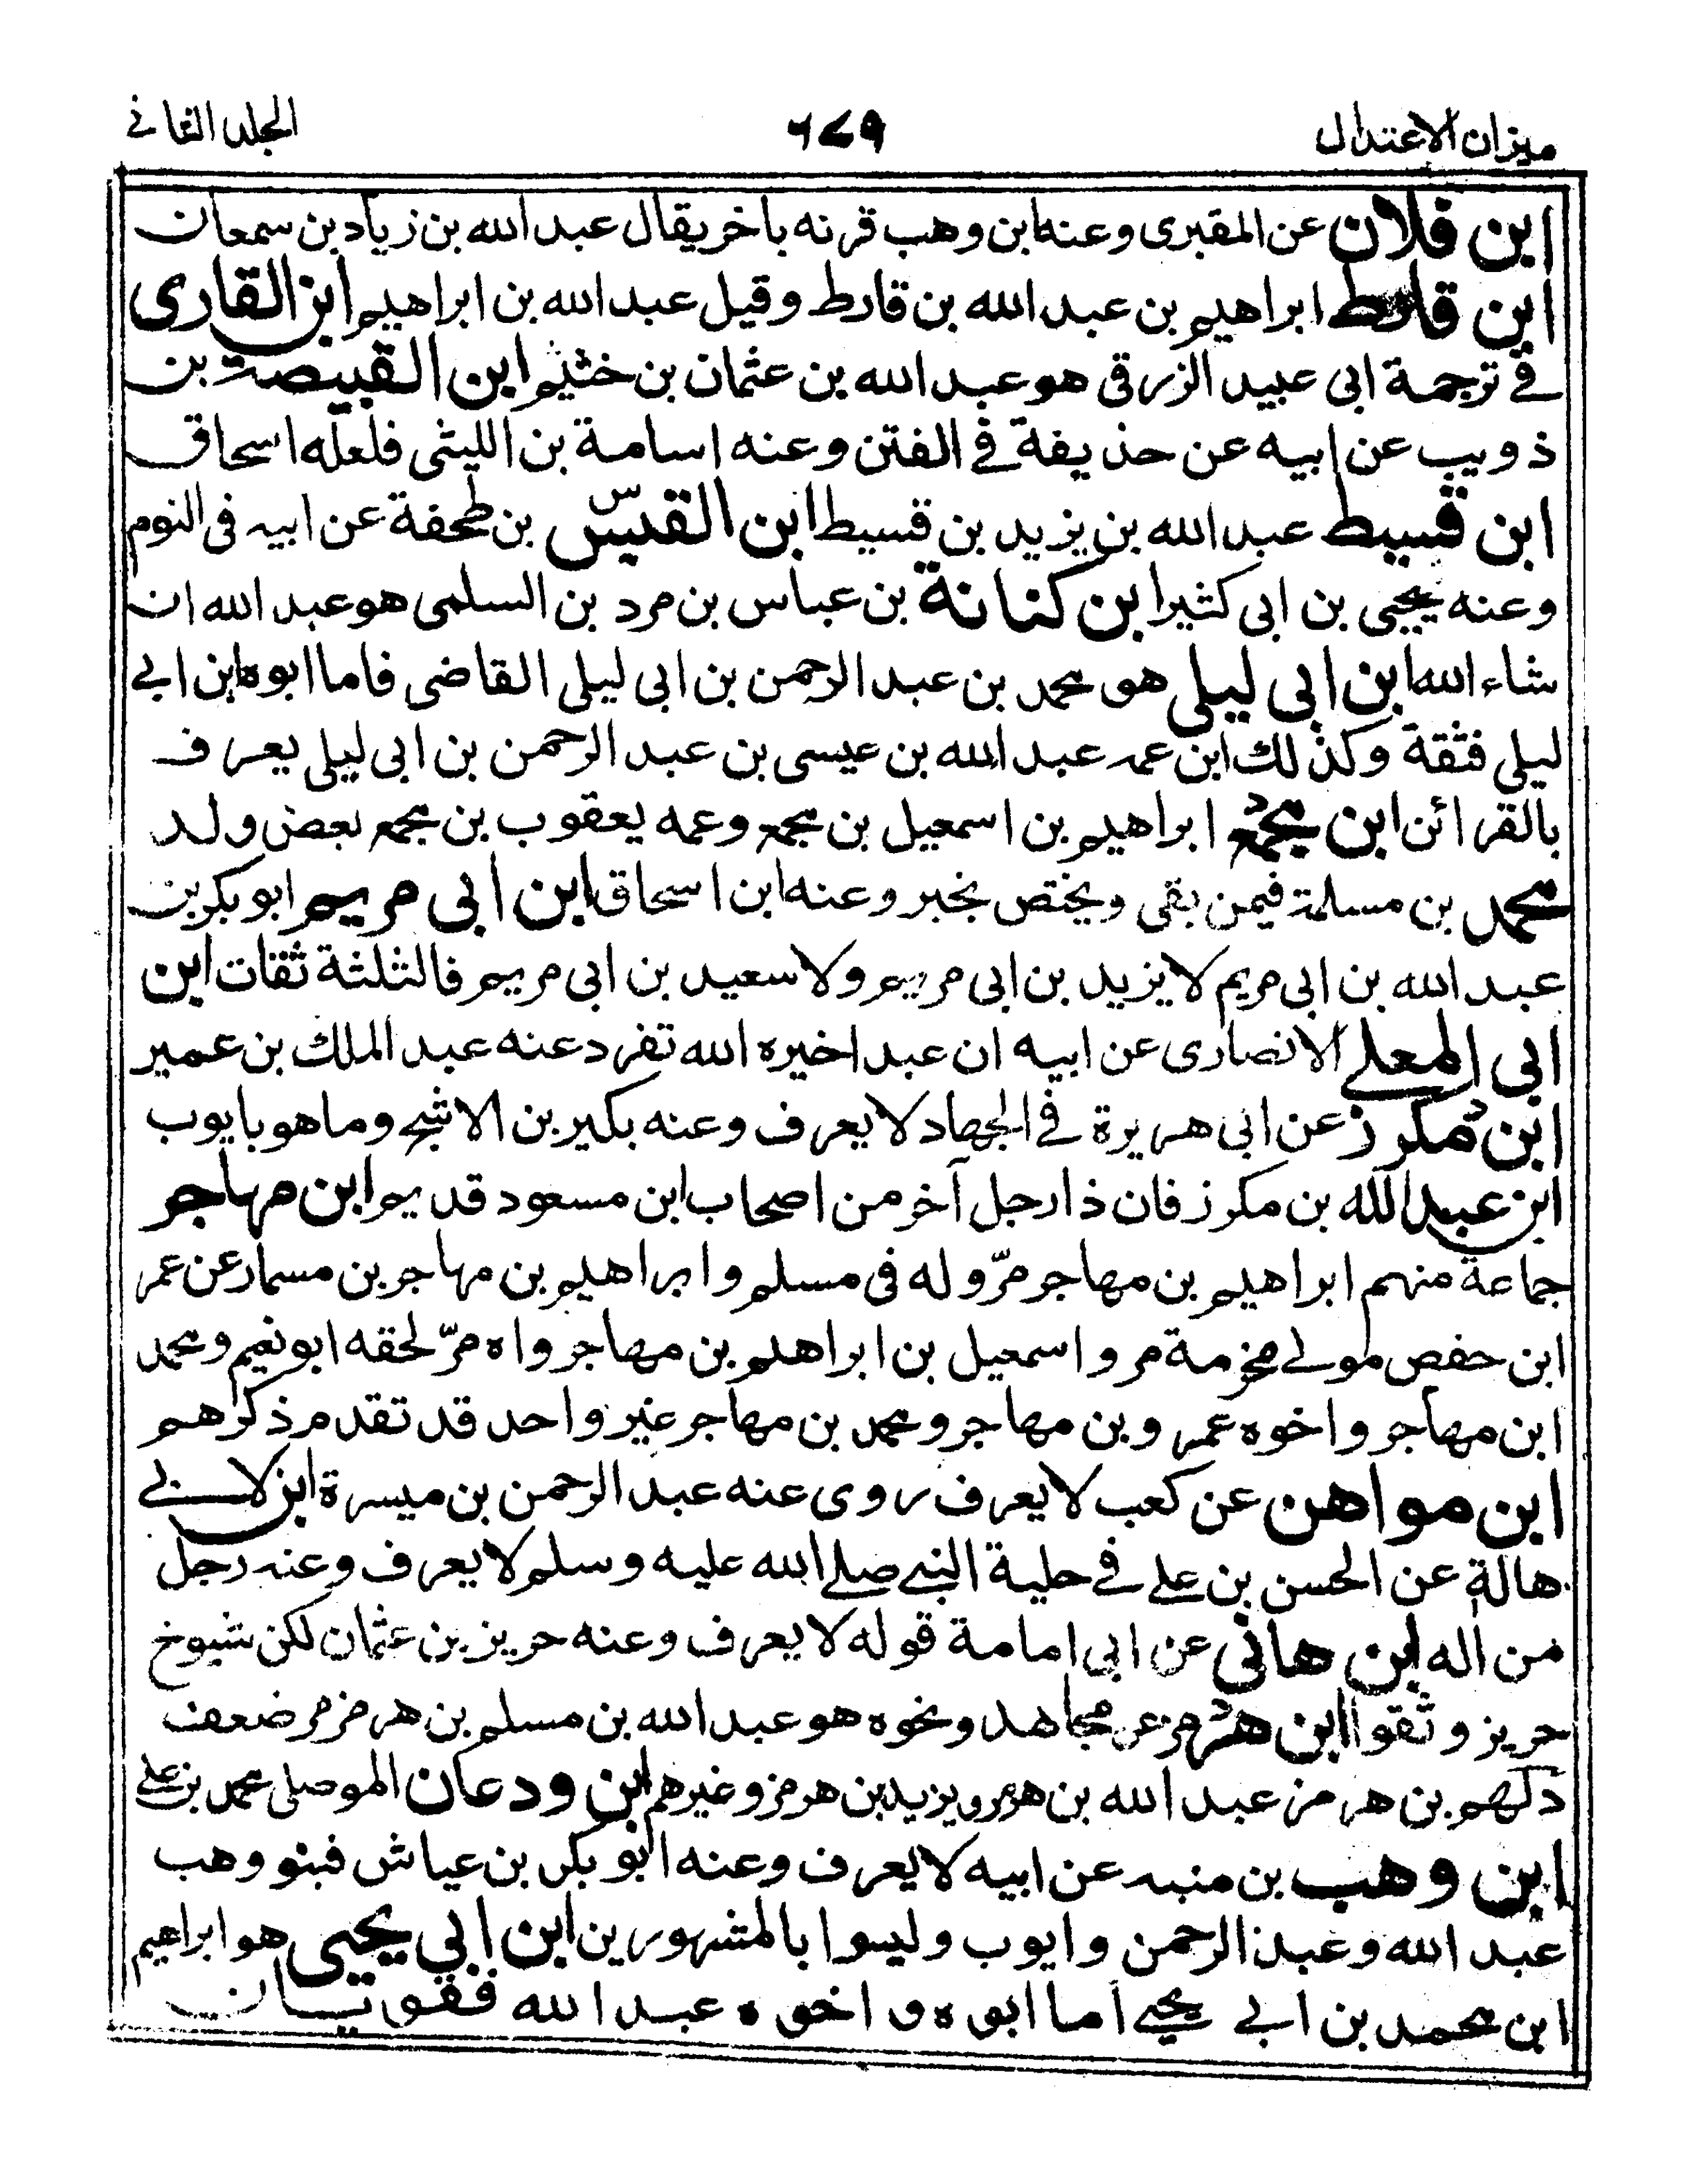 ميزان الاعتدال
٦٧٩
المجلد الثانے
ابن فلان عن المقبرى وعنه ابن وهب قرنه باخر يقال عبد الله بن زياد بن سمعان
ابن قارط ابراهيم بن عبد الله بن قارط وقيل عبد الله بن ابراهيم ابن القارى
فے ترجمة ابى عبيد الزرقى هو عبد الله بن عثمان بن خثيم ابن القبيصة بن
ذويب عن ابيه عن حذيفة فے الفتن وعنه اسامة بن الليثى فلعله اسحاق
ابن قسيط عبد الله بن يزيد بن قسيط ابن القيس بن طحفة عن ابيه فى النوم
وعنه يحيى بن ابى كثير ابن كنانة بن عباس بن مرد بن السلمى هو عبد الله ان
شاء الله ابن ابى ليلى هو محمد بن عبد الرحمن بن ابى ليلى القاضى فاما ابوه ابن ابے
ليلى فثقة وكذلك ابن عمه عبد الله بن عيسى بن عبد الرحمن بن ابى ليلى يعرف
بالقرائن ابن مجمع ابراهيم بن اسمعيل بن مجمع وعمه يعقوب بن مجمع بعض ولد
محمد بن مسلمة فيمن بقى ويختص بخبر وعنه ابن اسحاق ابن ابى مريم ابو بكر بن
عبد الله بن ابى مريم لا يزيد بن ابى مريم ولا سعيد بن ابى مريم فالثلثة ثقات ابن
ابى المعلے الانصارى عن ابيه ان عبدا خيره الله تفرد عنه عبد الملك بن عمير
ابن مكرز عن ابى هريرة فے الجهاد لا يعرف وعنه بكير بن الاشج وما هو بايوب
ابن عبد الله بن مكرز فان ذا رجل آخر من اصحاب ابن مسعود قديم ابن مهاجر
جماعة منهم ابراهيم بن مهاجر مرّ وله فى مسلم وابراهيم بن مهاجر بن مسمار عن عمر
ابن حفص مولے مخزمة مر واسمعيل بن ابراهيم بن مهاجر واه مرّ لحقه ابو نعيم ومحمد
ابن مهاجر واخوه عمرو بن مهاجر ومحمد بن مهاجر غير واحد قد تقدم ذكرهم
ابن مواهن عن كعب لا يعرف روى عنه عبد الرحمن بن ميسرة ابن لابے
هالة عن الحسن بن علے فے حلية النبے صلے الله عليه وسلم لا يعرف وعنه رجل
من اله ابن هانى عن ابى امامة قوله لا يعرف وعنه حريز بن عثمان لكن شيوخ
حريز وثقوا ابن هرمز عن مجاهد ونحوه هو عبد الله بن مسلم بن هرمز مر ضعف
دلهم بن هرمز عبد الله بن هرمز ويزيد بن هرمز وغيرهم ابن ودعان الموصلى محمد بن علے
ابن وهب بن منبه عن ابيه لا يعرف وعنه ابو بكر بن عياش فبنو وهب
عبد الله وعبد الرحمن وايوب وليسوا بالمشهورين ابن ابى يحيى هو ابراهيم
ابن محمد بن ابے يحيے اما ابوه واخوه عبد الله فقويان